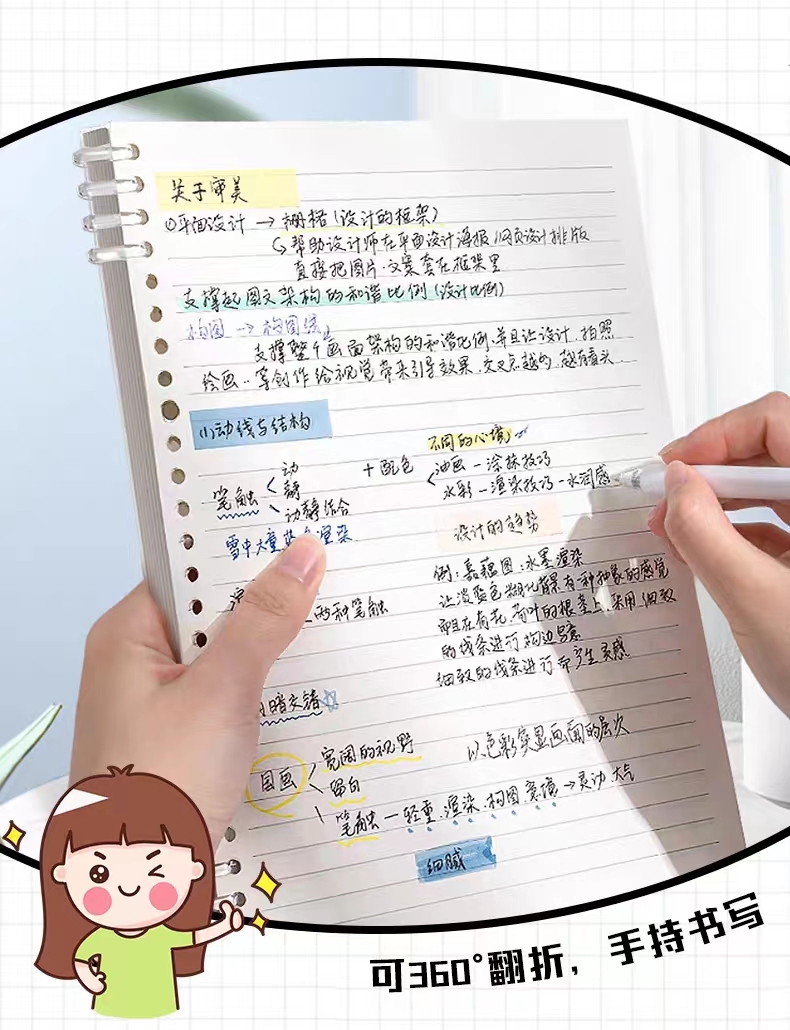 关于审美
①平面设计 → 栅格(设计的框架)
↳帮助设计师在平面设计海报、网页设计排版
直接把图片·文案套在框架里
支撑起图文架构的和谐比例(设计比例)
构图 → 构图线
支撑整个画面架构的和谐比例、并且让设计、拍照
绘画··等创作给视觉带来引导效果、交叉点越多、越有看头
(1)动线与结构
不同的心境
笔触
动
静
动静结合
+配色
油画—涂抹技巧
水彩—渲染技巧—水润感
雪中大量 渲染
设计的趋势
两种笔触
例:嘉蕴图:水墨渲染
让淡蓝色 背景有一种抽象的感觉
而且在荷花、荷叶的根茎上、采用细致
的线条进行勾边
细致的线条进行 产生灵感
暗交错
国画
宽阔的视野
留白
笔触—轻重、渲染、构图、意境→灵动、大气
以色彩突显画面的层次
细腻
可360°翻折，手持书写